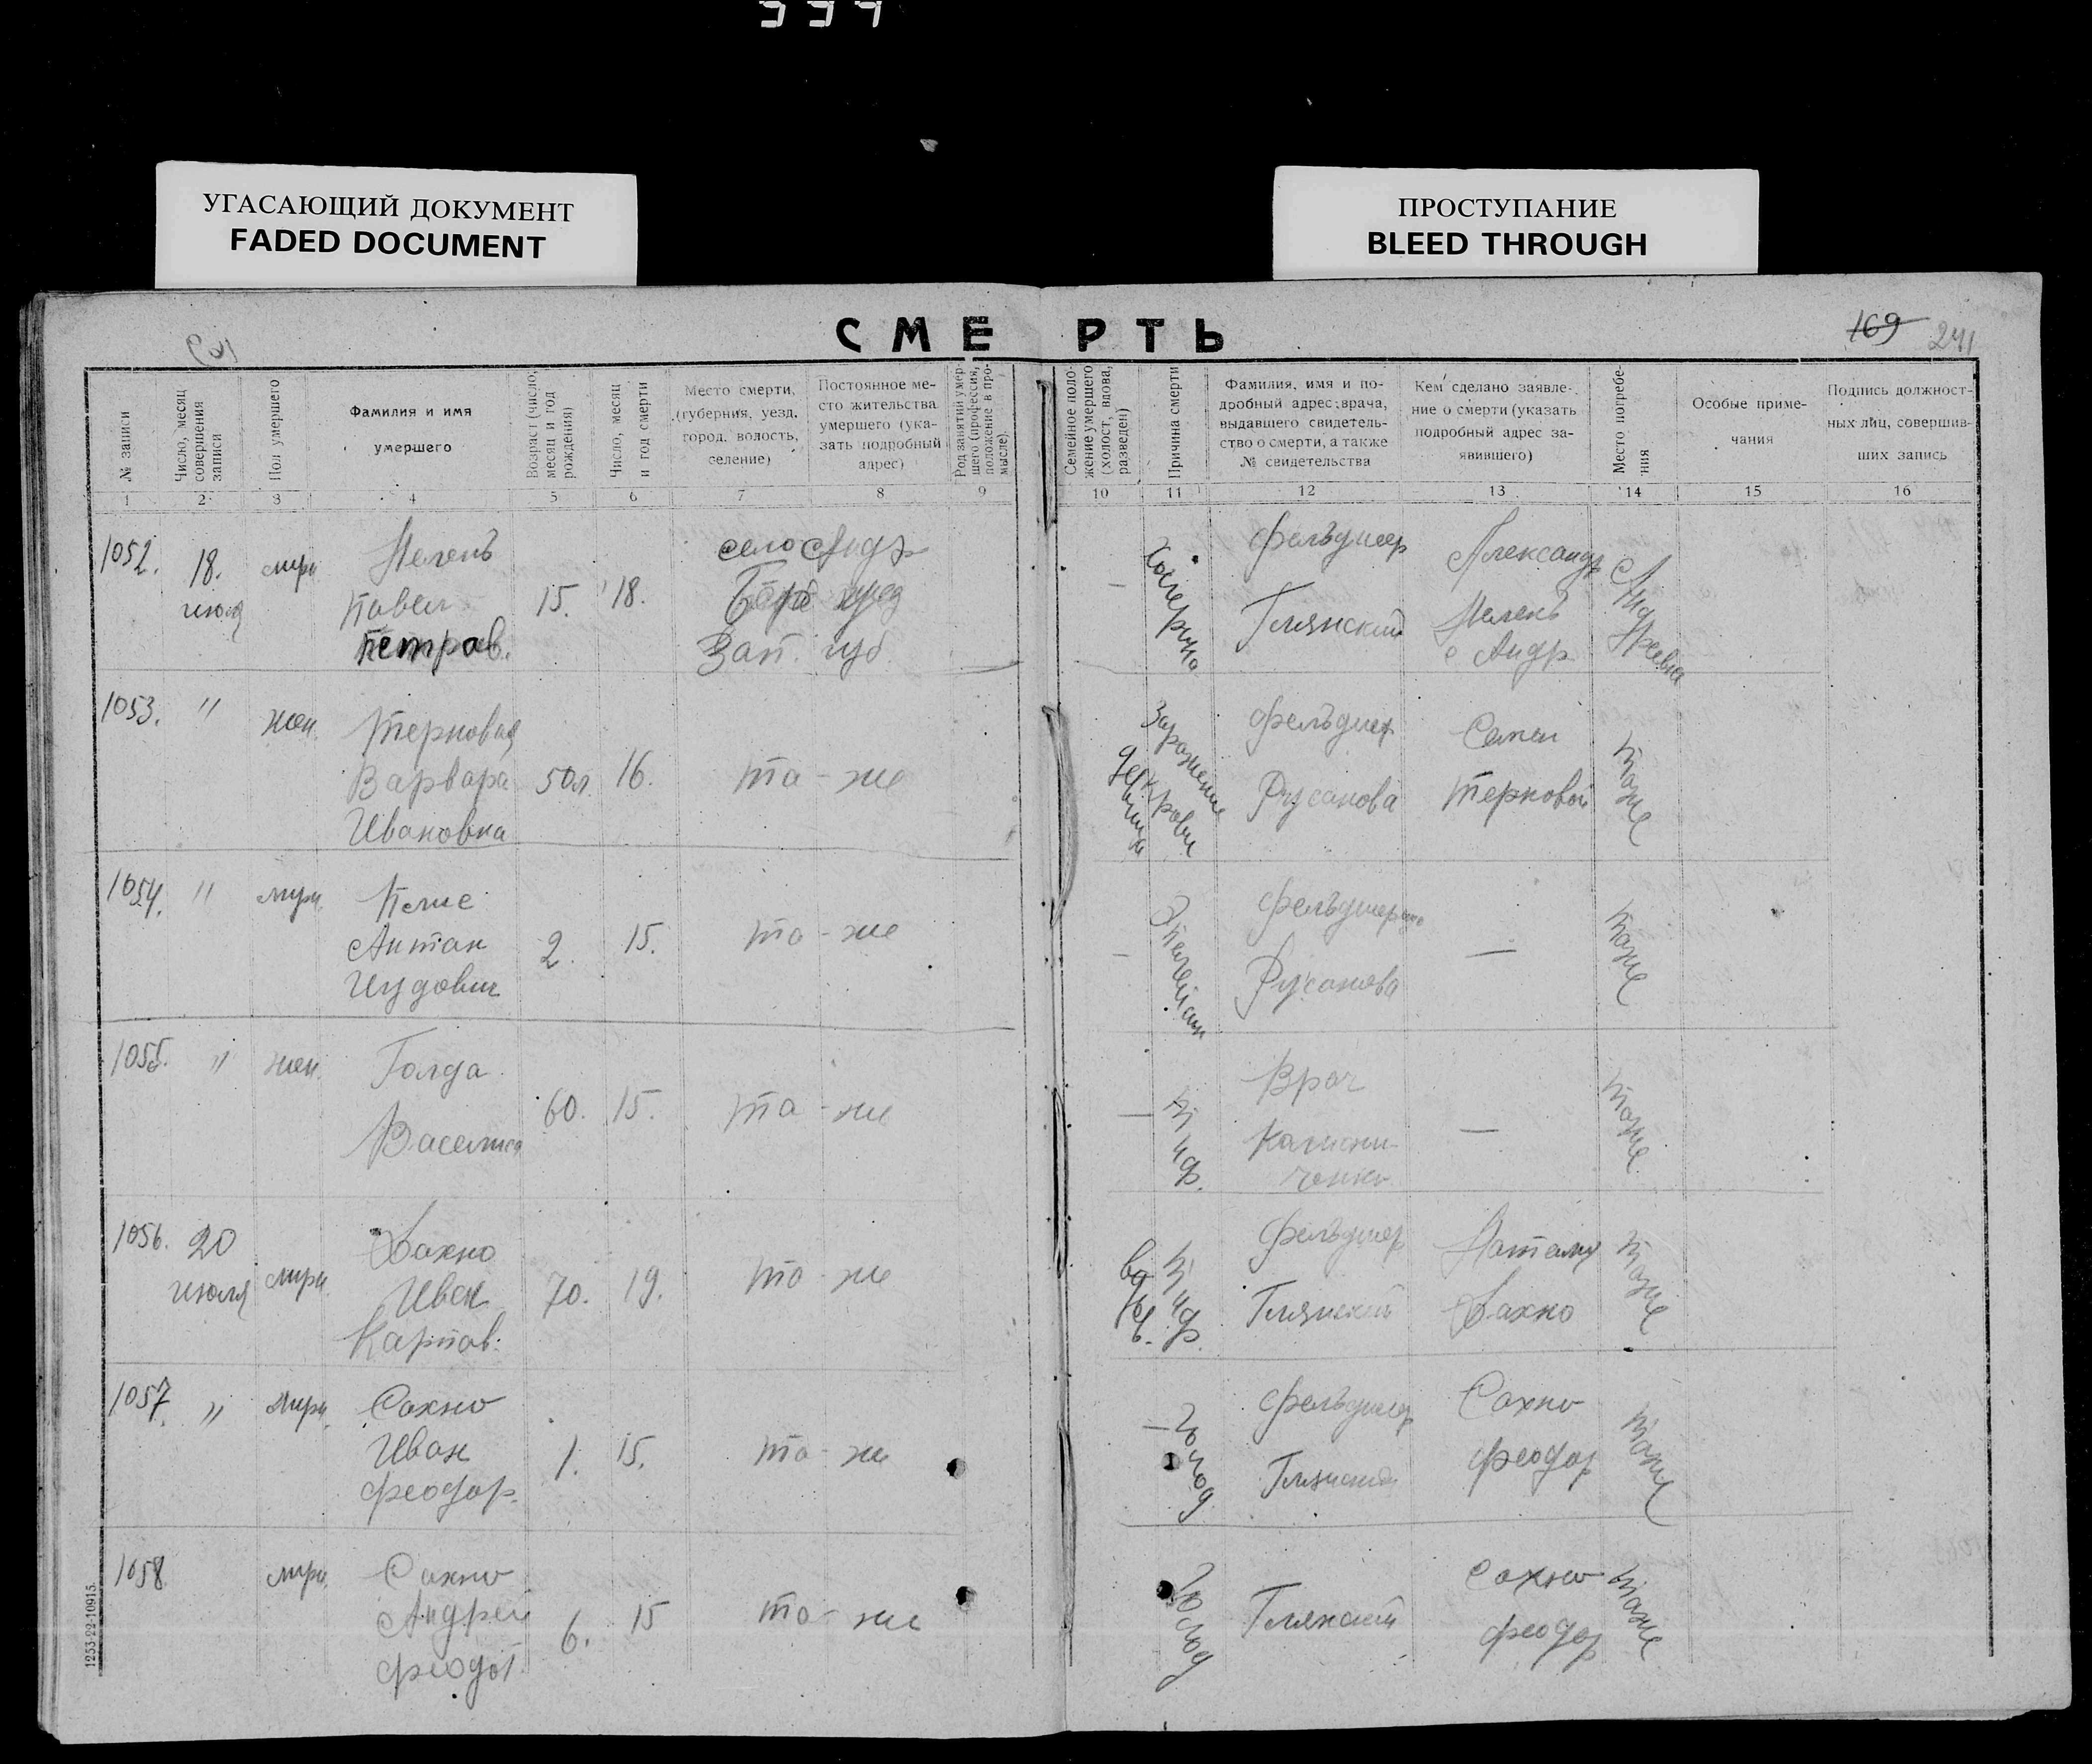 УГАСАЮЩИЙ ДОКУМЕНТ
FADED DOCUMENT
ПРОСТУПАНИЕ
BLEED THROUGH
СМЕРТЬ
169
241
№ записи
Число, месяц
совершения
записи
Пол умершего
Фамилия и имя
умершего
Возраст (число,
месяц и год
рождения)
Число, месяц
и год смерти
Место смерти,
(губерния, уезд,
город, волость,
селение)
Постоянное ме-
сто жительства
умершего (ука-
зать подробный
адрес)
Род занятий умер-
шего (профессия,
положение в про-
мысле).
Семейное поло-
жение умершего
(холост, вдова,
разведен)
Причина смерти
Фамилия, имя и по-
дробный адрес врача,
выдавшего свидетель-
ство о смерти, а также
№ свидетельства
Кем сделано заявле-
ние о смерти (указать
подробный адрес за-
явившего)
Место погребе-
ния
Особые приме-
чания
Подпись должност-
ных лиц, совершив-
ших запись
1 2 3 4 5 6 7 8 9 10 11 12 13 14 15 16
1052.
18.
июля
Павел
Петров.
15.
18.
село Андр
Зап. губ
—
Холерина
Фельдшер
Глянский
Александр
с Андр
Андреевка
1053.
"
жен.
Терновая
Варвара
Ивановна
50 л.
16.
та-же
Заражение
крови
Фельдшер
Русанова
Семен
Терновой
тоже
1054.
"
муж.
Антон
2.
15.
та-же
—
Русанова
—
тоже
1055.
"
жен.
Голда
60.
15.
та-же
—
Тиф.
Врач
—
тоже
1056.
20
июля
муж.
Иван
Карпов.
70.
19.
та-же
Тиф.
Фельдшер
Глянский
Наталия
тоже
1057.
"
муж.
Сахно
Иван
Феодор.
1.
15.
та-же
—
Голод
Фельдшер
Глянский
Сахно
Феодор
тоже
1058
муж.
Сахно
Андрей
6.
15
та-же
Голод
Глянский
Сахно
Феодор
тоже
1253-22-10915.